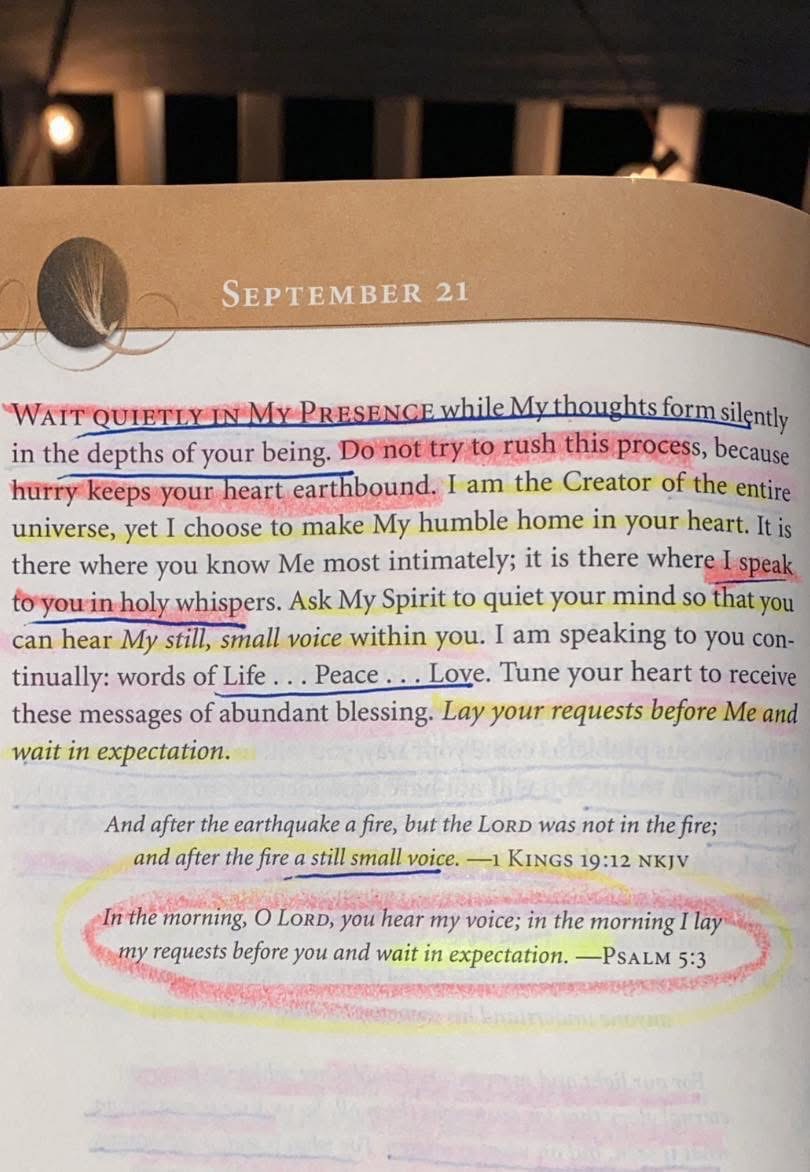 SEPTEMBER 21
WAIT QUIETLY IN MY PRESENCE while My thoughts form silently
in the depths of your being. Do not try to rush this process, because
hurry keeps your heart earthbound. I am the Creator of the entire
universe, yet I choose to make My humble home in your heart. It is
there where you know Me most intimately; it is there where I speak
to you in holy whispers. Ask My Spirit to quiet your mind so that you
can hear My still, small voice within you. I am speaking to you con-
tinually: words of Life . . . Peace . . . Love. Tune your heart to receive
these messages of abundant blessing. Lay your requests before Me and
wait in expectation.
And after the earthquake a fire, but the LORD was not in the fire;
and after the fire a still small voice. —1 KINGS 19:12 NKJV
In the morning, O LORD, you hear my voice; in the morning I lay
my requests before you and wait in expectation. —PSALM 5:3